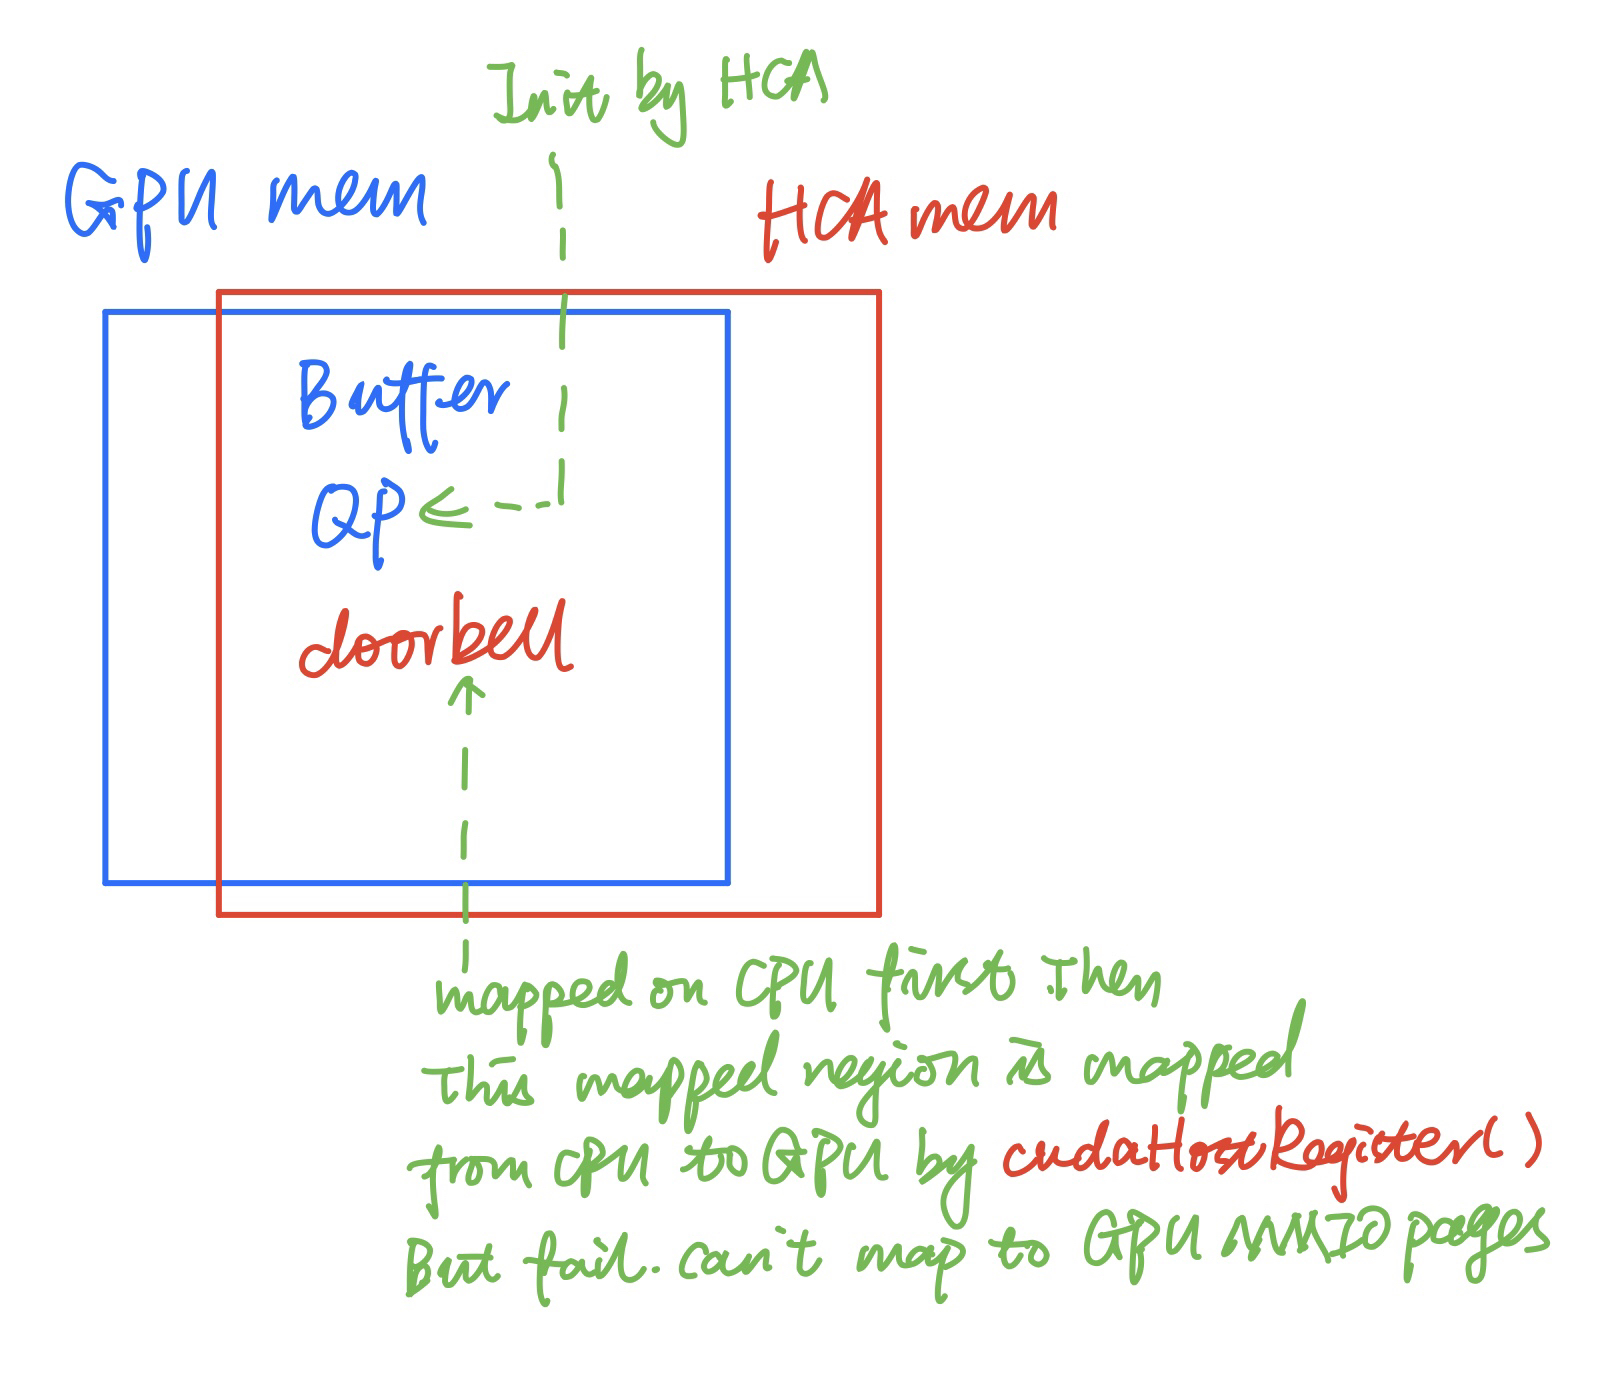 Init by HCA
GPU mem
HCA mem
Buffer
QP
doorbell
mapped on CPU first Then
This mapped region is mapped
from CPU to GPU by cudaHostRegister()
But fail. can't map to GPU MMIO pages